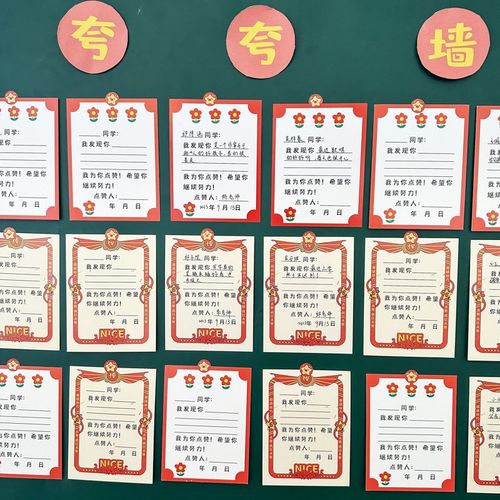 夸夸墙
同学:
我发现你
我为你点赞!希望你
继续努力!
点赞人:
年 月 日
同学:
我发现你
我为你点赞!希望你
继续努力!
点赞人:
年 月 日
同学:
我发现你是一个非常
我为你点赞!希望你
继续努力!
点赞人:
2023年9月13日
同学:
我发现你
我为你点赞!希望你
继续努力!
点赞人:
年 月 日
同学:
我发现你
我为你点赞!希望你
继续努力!
点赞人:
年 月 日
同学:
我发现你
我为你点赞!希望
你继续努力!
点赞人:
年 月 日
NICE
同学:
我发现你
我为你点赞!希望
你继续努力!
点赞人:
年 月 日
NICE
同学:
我发现你
我为你点赞!希望
你继续努力!
点赞人:
2023年9月13日
NICE
同学:
我发现你
我为你点赞!希望
你继续努力!
点赞人:
2023年9月13日
NICE
同学:
我发现你
我为你点赞!希望
你继续努力!
点赞人:
年 月 日
NICE
同学:
我发现你
我为你点赞!希望你
继续努力!
点赞人:
年 月 日
同学:
我发现你
我为你点赞!希望
你继续努力!
点赞人:
年 月 日
NICE
同学:
我发现你
我为你点赞!希望你
继续努力!
点赞人:
年 月 日
同学:
我发现你
我为你点赞!希望
你继续努力!
点赞人:
年 月 日
NICE
同学:
我发现你
我为你点赞!希望你
继续努力!
点赞人:
年 月 日